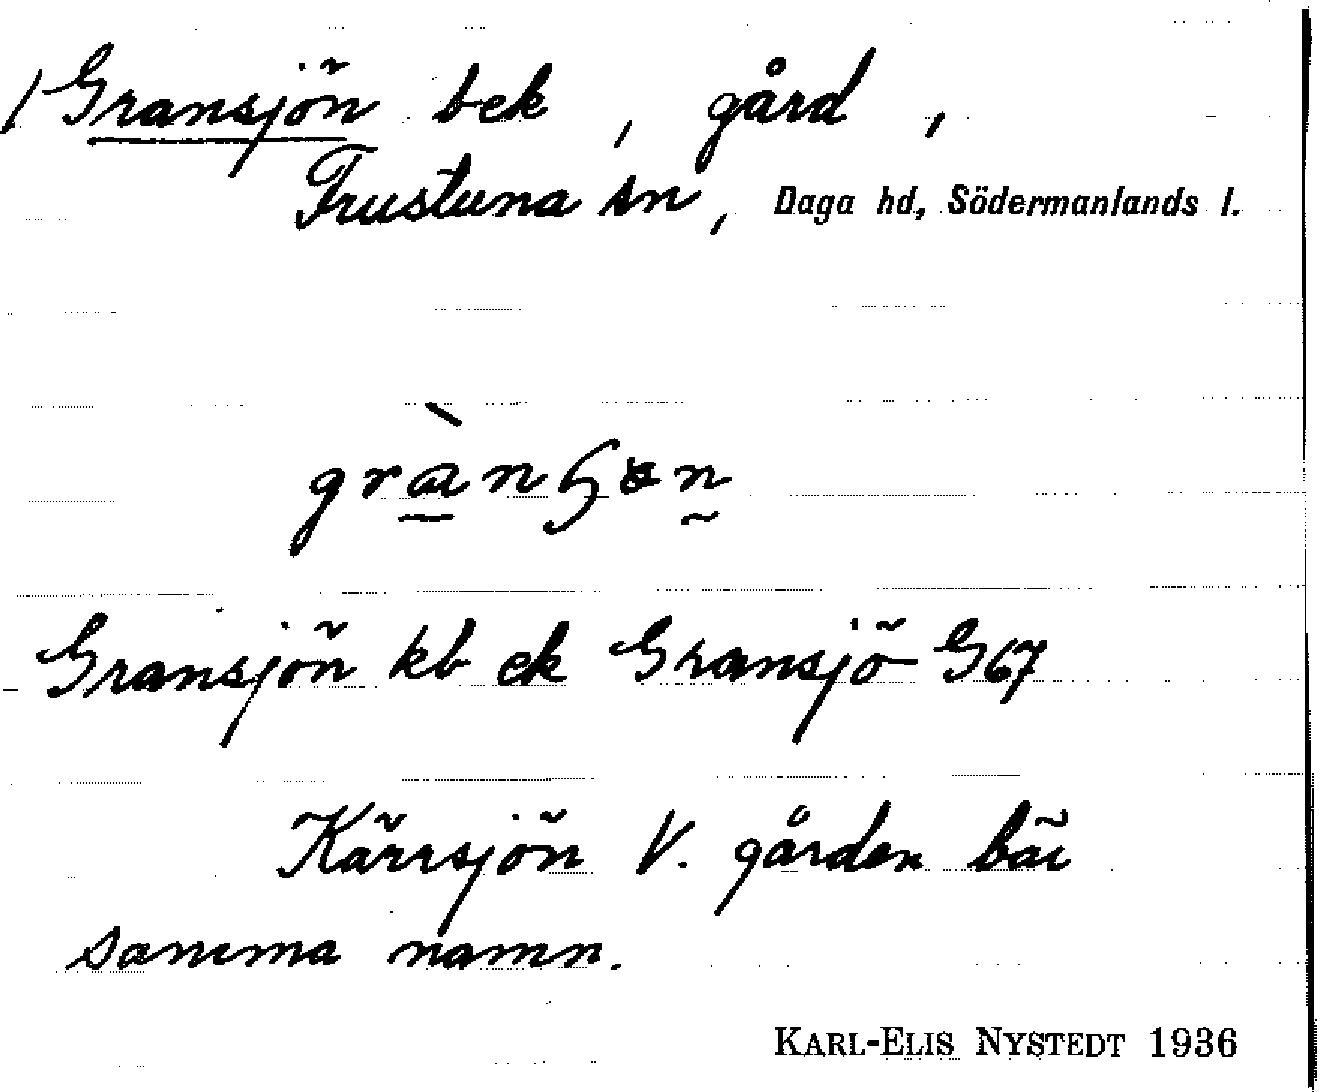 / Gransjön bek, gård,
Frustuna sn, Daga hd, Södermanlands l.
Gransjön kb ek Gransjö G67
Kärrsjön V. gården bär
samma namn.
KARL-ELIS NYSTEDT 1936